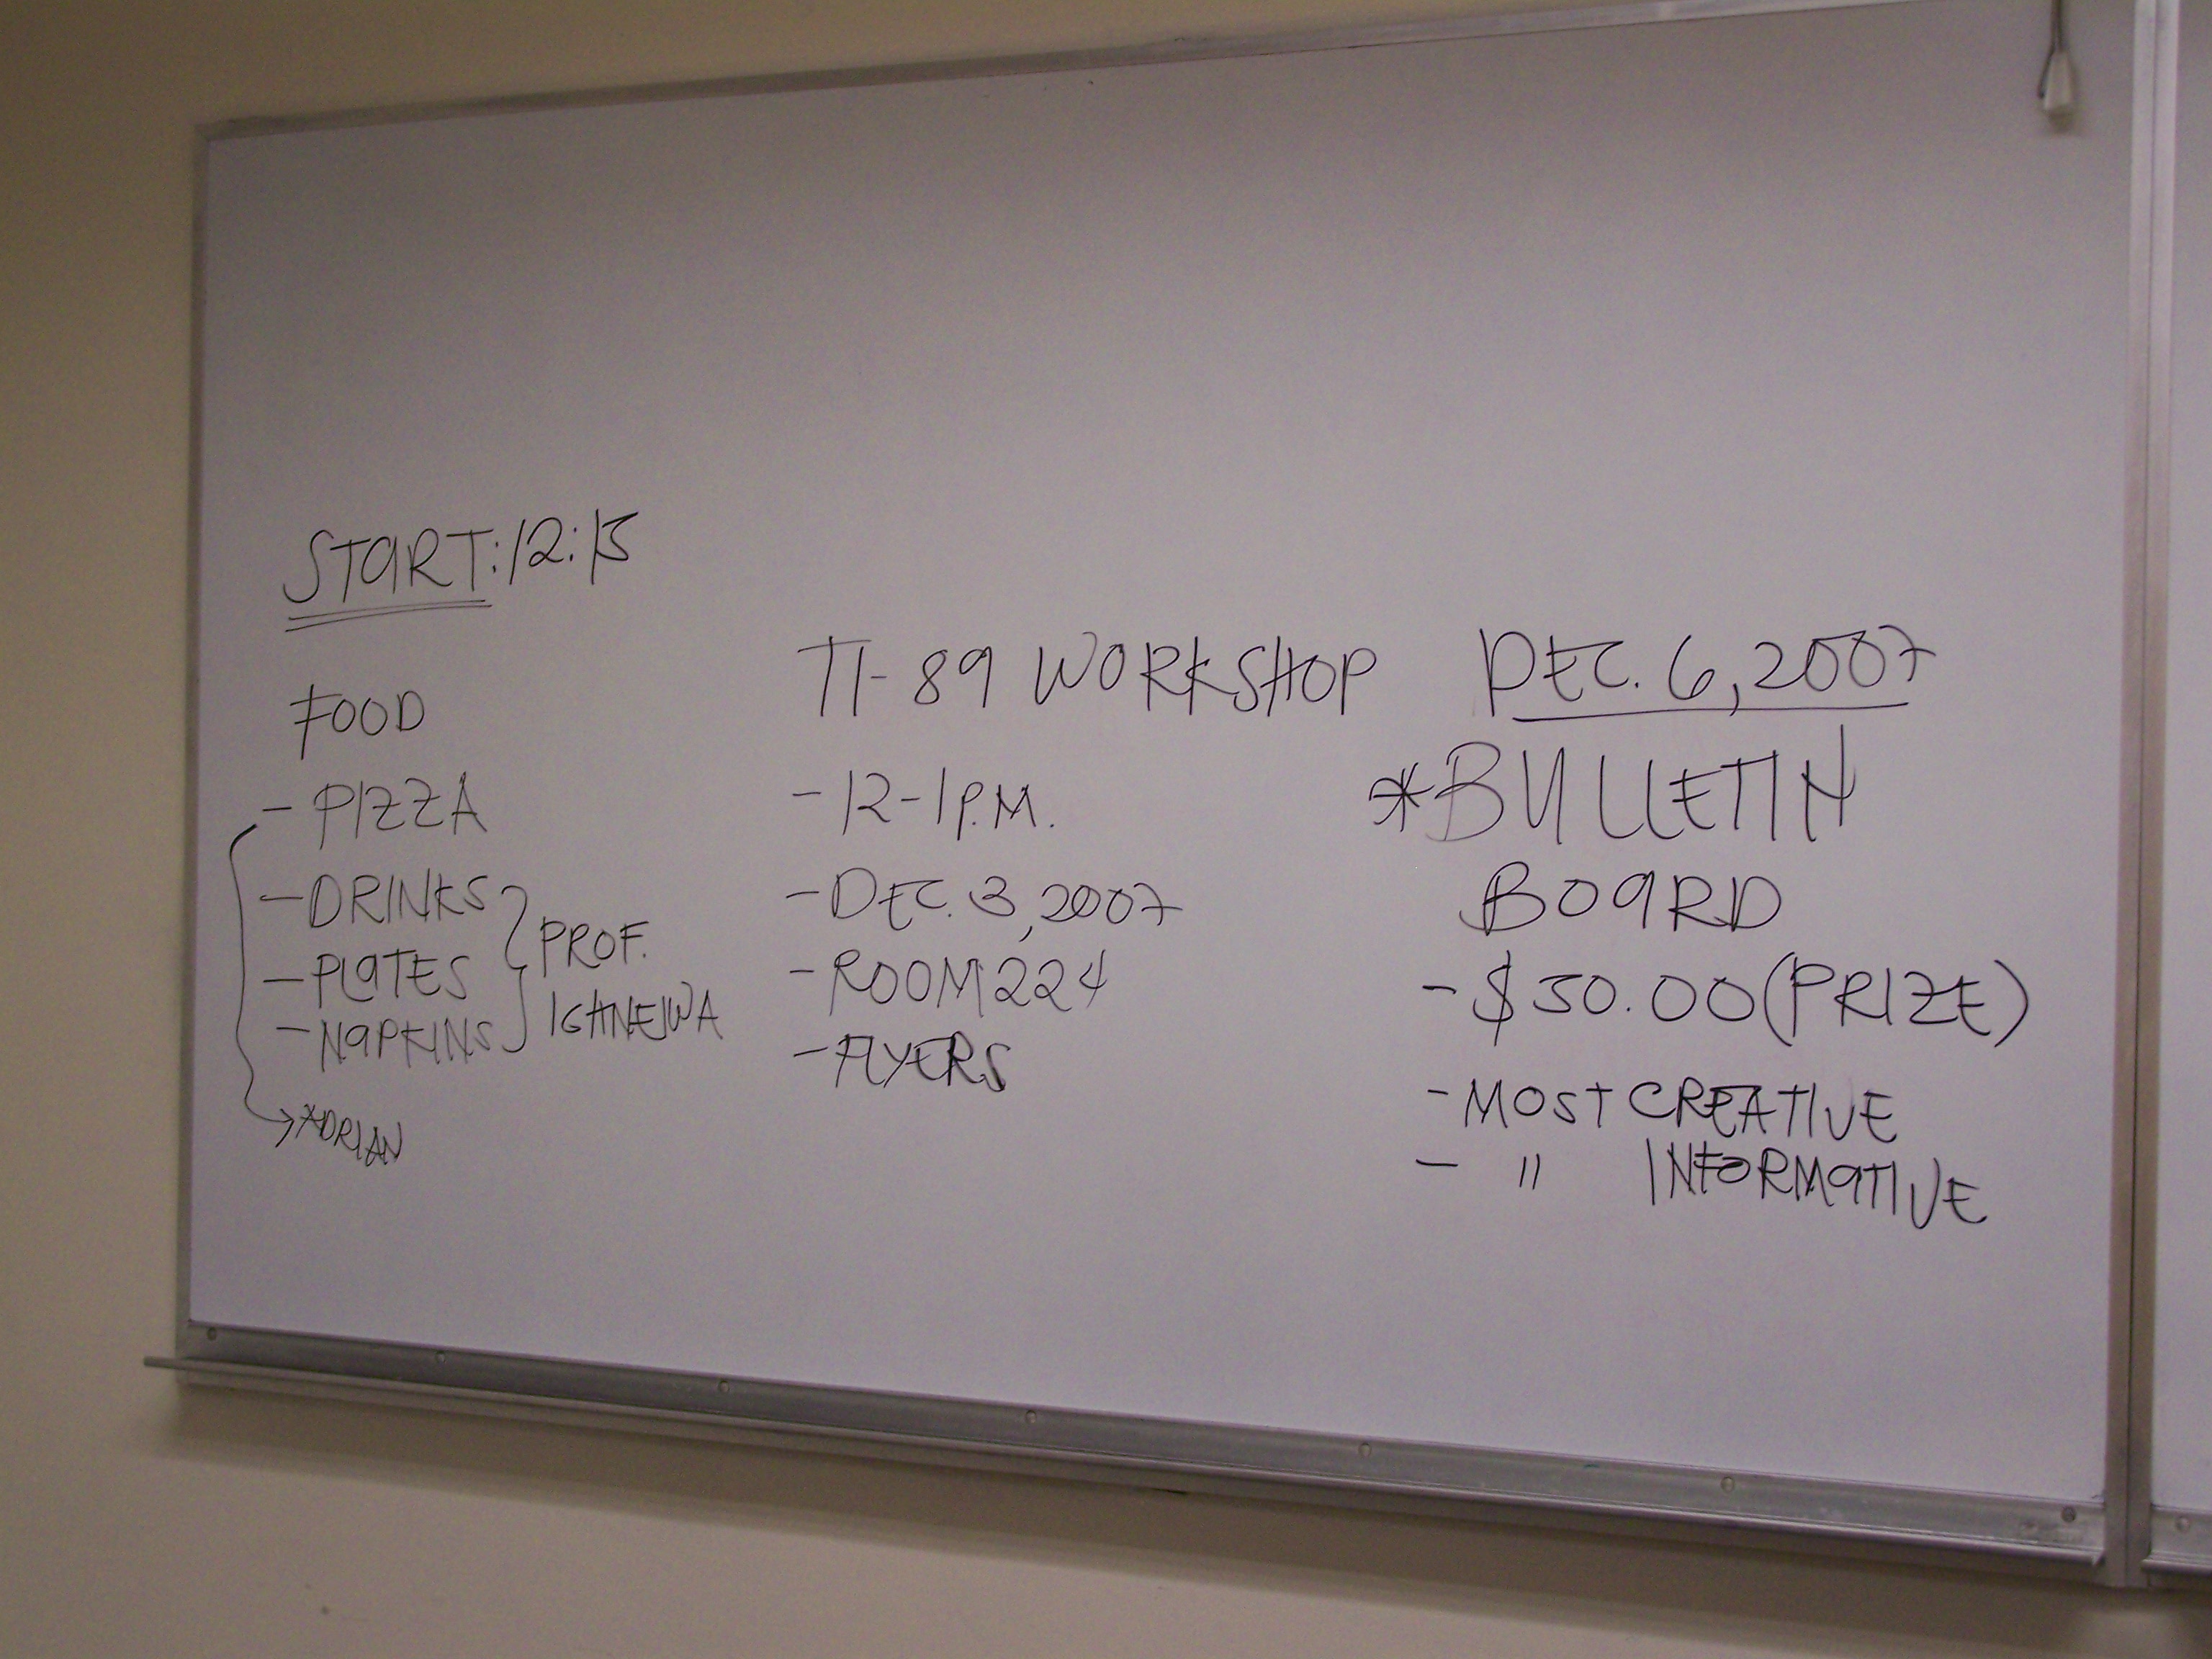 START: 12:15
FOOD
- PIZZA
- DRINKS
- PLATES
- NAPKINS
PROF.
IGHNEIWA
→ ADRIAN
TI-89 WORKSHOP
- 12-1 P.M.
- DEC. 3, 2007
- ROOM 224
- FLYERS
DEC. 6, 2007
*BULLETIN
BOARD
- $50.00 (PRIZE)
- MOST CREATIVE
- " INFORMATIVE